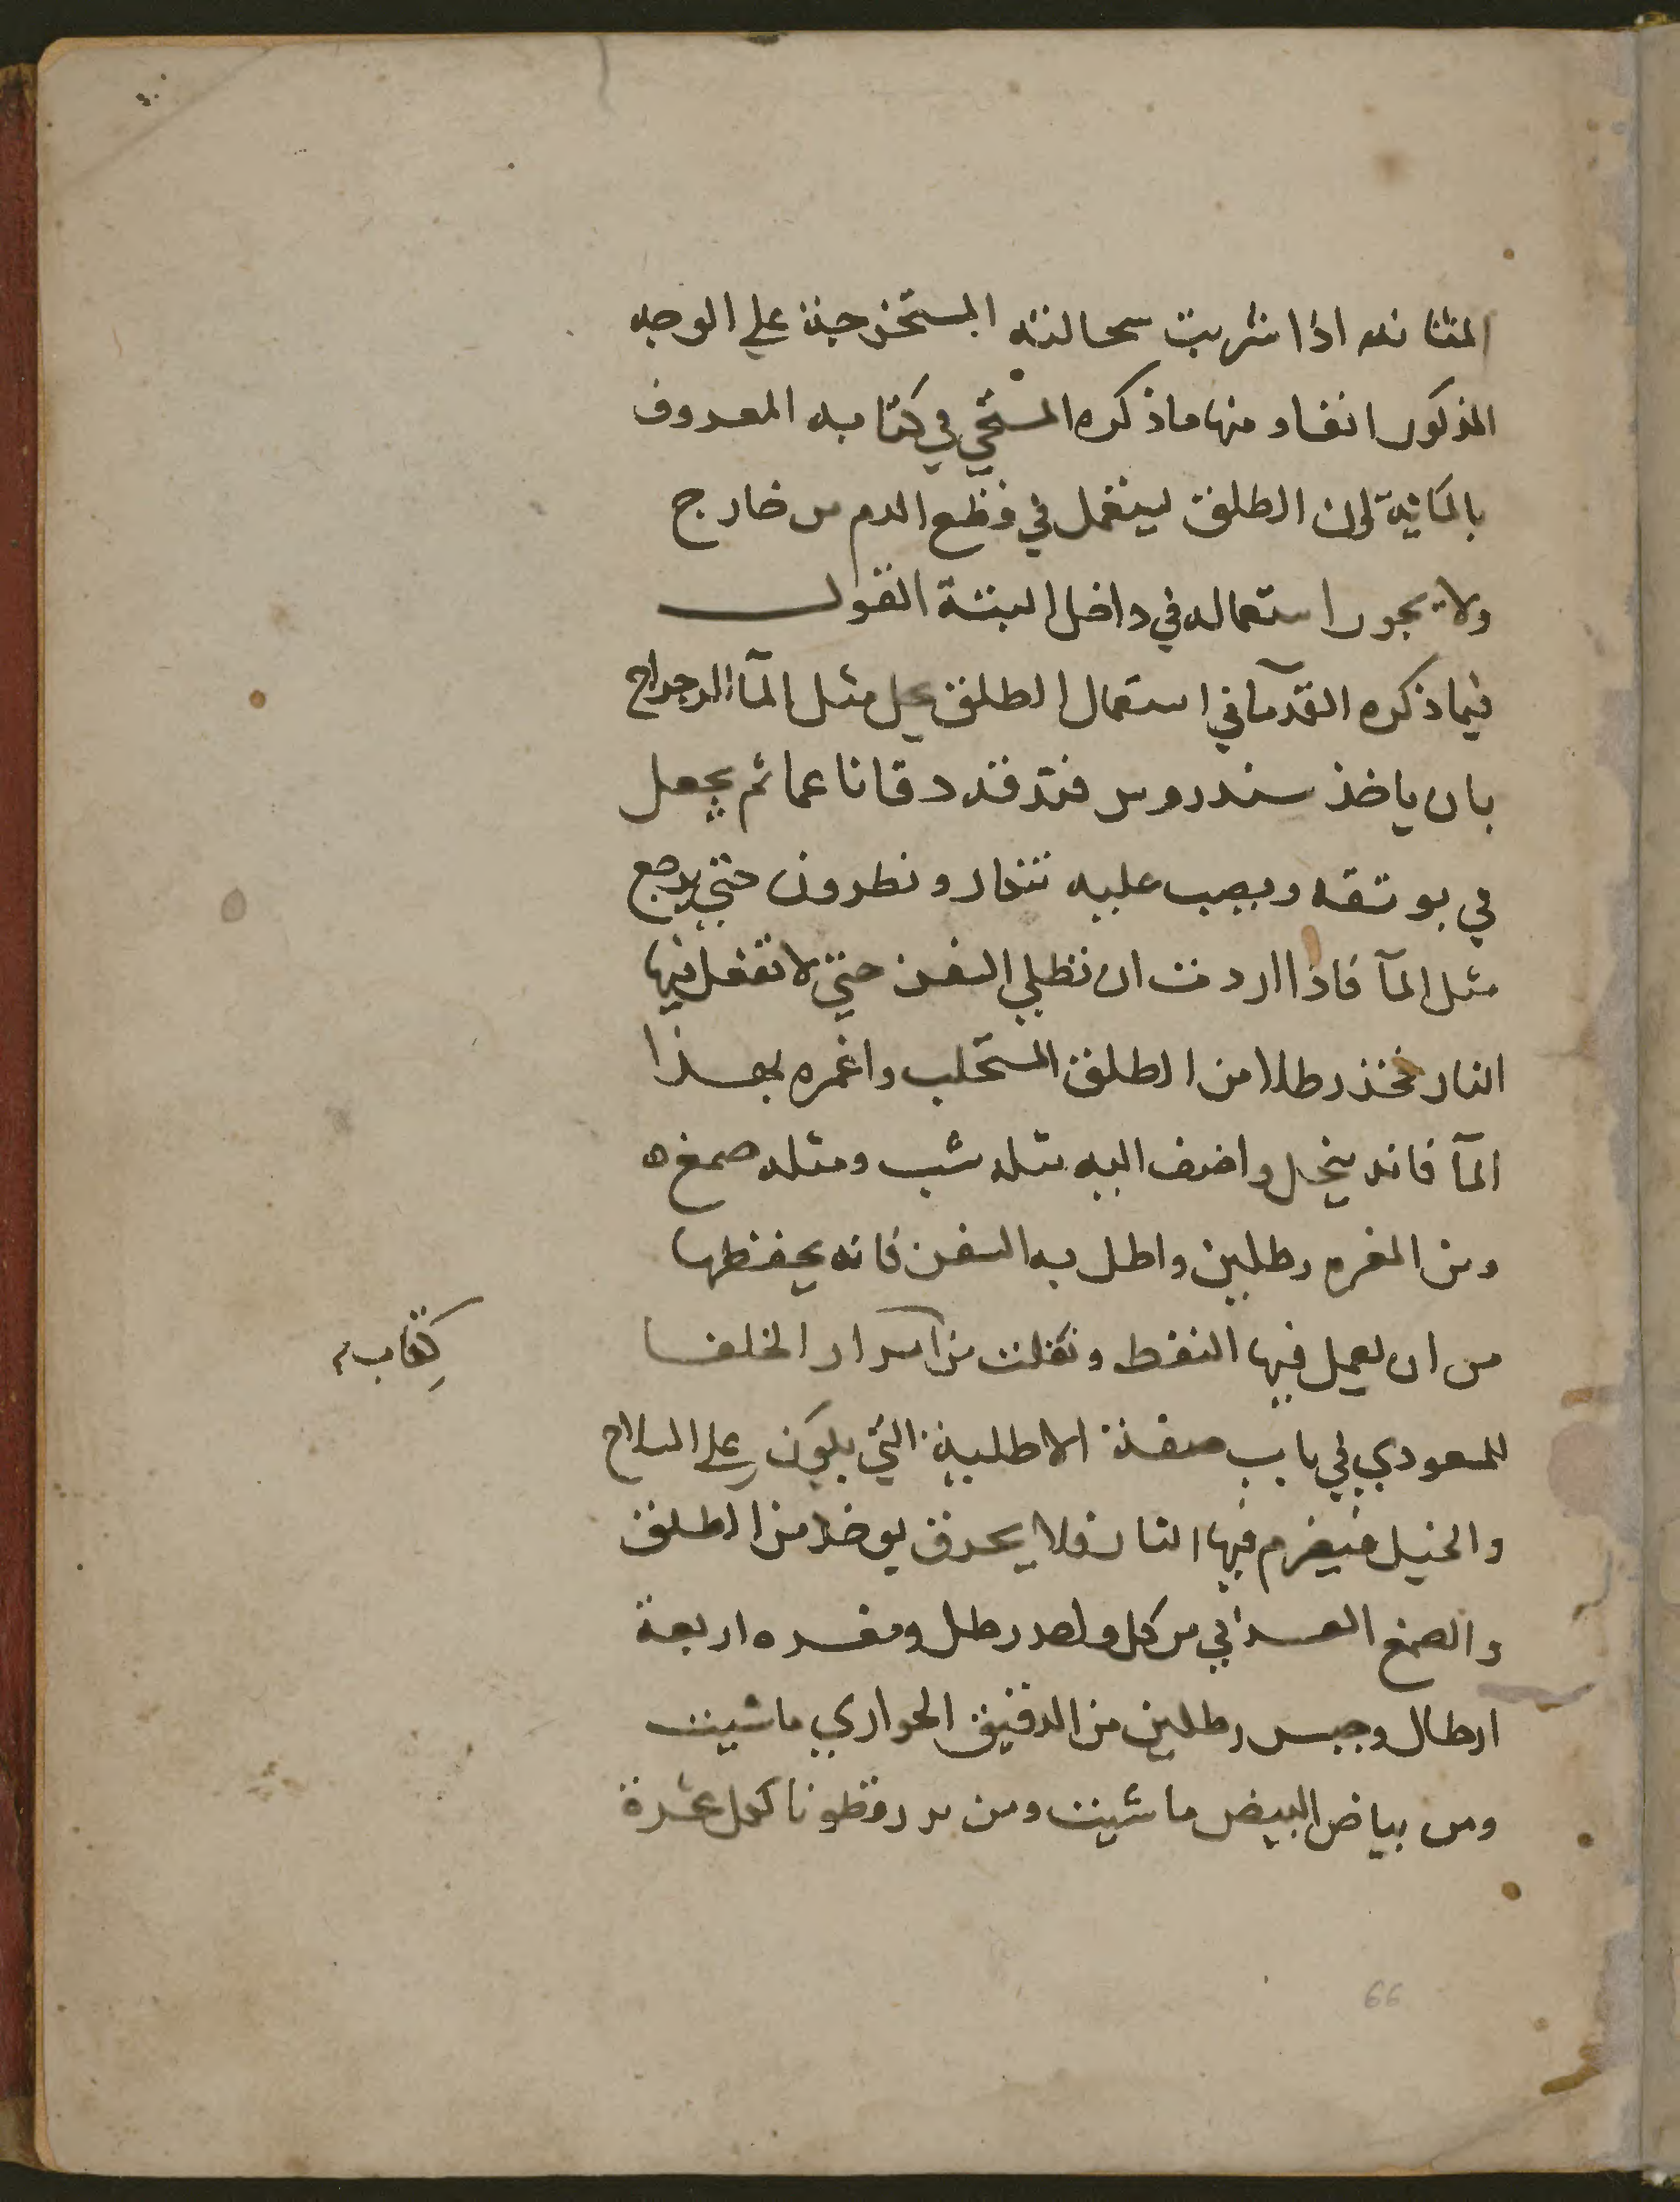 المثانه اذا شربت سحالته المستخرجة علي الوجه
المذكور انفا ومنها ما ذكره المسيحي في كتابه المعروف
بالمائية لان الطلق ليستعمل في قطع الدم من خارج
ولا يجوز استعماله في داخل البتة القول
فيما ذكره القدمآ في استعمال الطلق يحل مثل المآ الرجراج
بان ياخذ سندروس فتدقه دقا ناعما ثم يجعل
في بوتقه ويصب عليه تنكار ونطرون حتي يرجع
مثل المآ فاذا اردت ان تطلي السفن حتي لا تفعل فيها
النار فخذ رطلا من الطلق المستحلب واغمره بهذا
المآ فانه ينحل واضف اليه مثله شب ومثله صمغ ه
ومن المغره رطلين واطل به السفن فانه يحفظها
من ان يعمل فيها النفط ونقلت من اسرار الخلفا
كتاب
للمسعودي في باب صفة الاطلية التي يكون علي السلاح
والخيل فيضرم فيها النار فلا يحرق يوخذ من الطلق
والصمغ العربي من كل واحد رطل ومغره اربعة
ارطال وجبس رطلين من الدقيق الحواري ما شيت
ومن بياض البيض ما شيت ومن بزر قطونا لكل عشرة
66